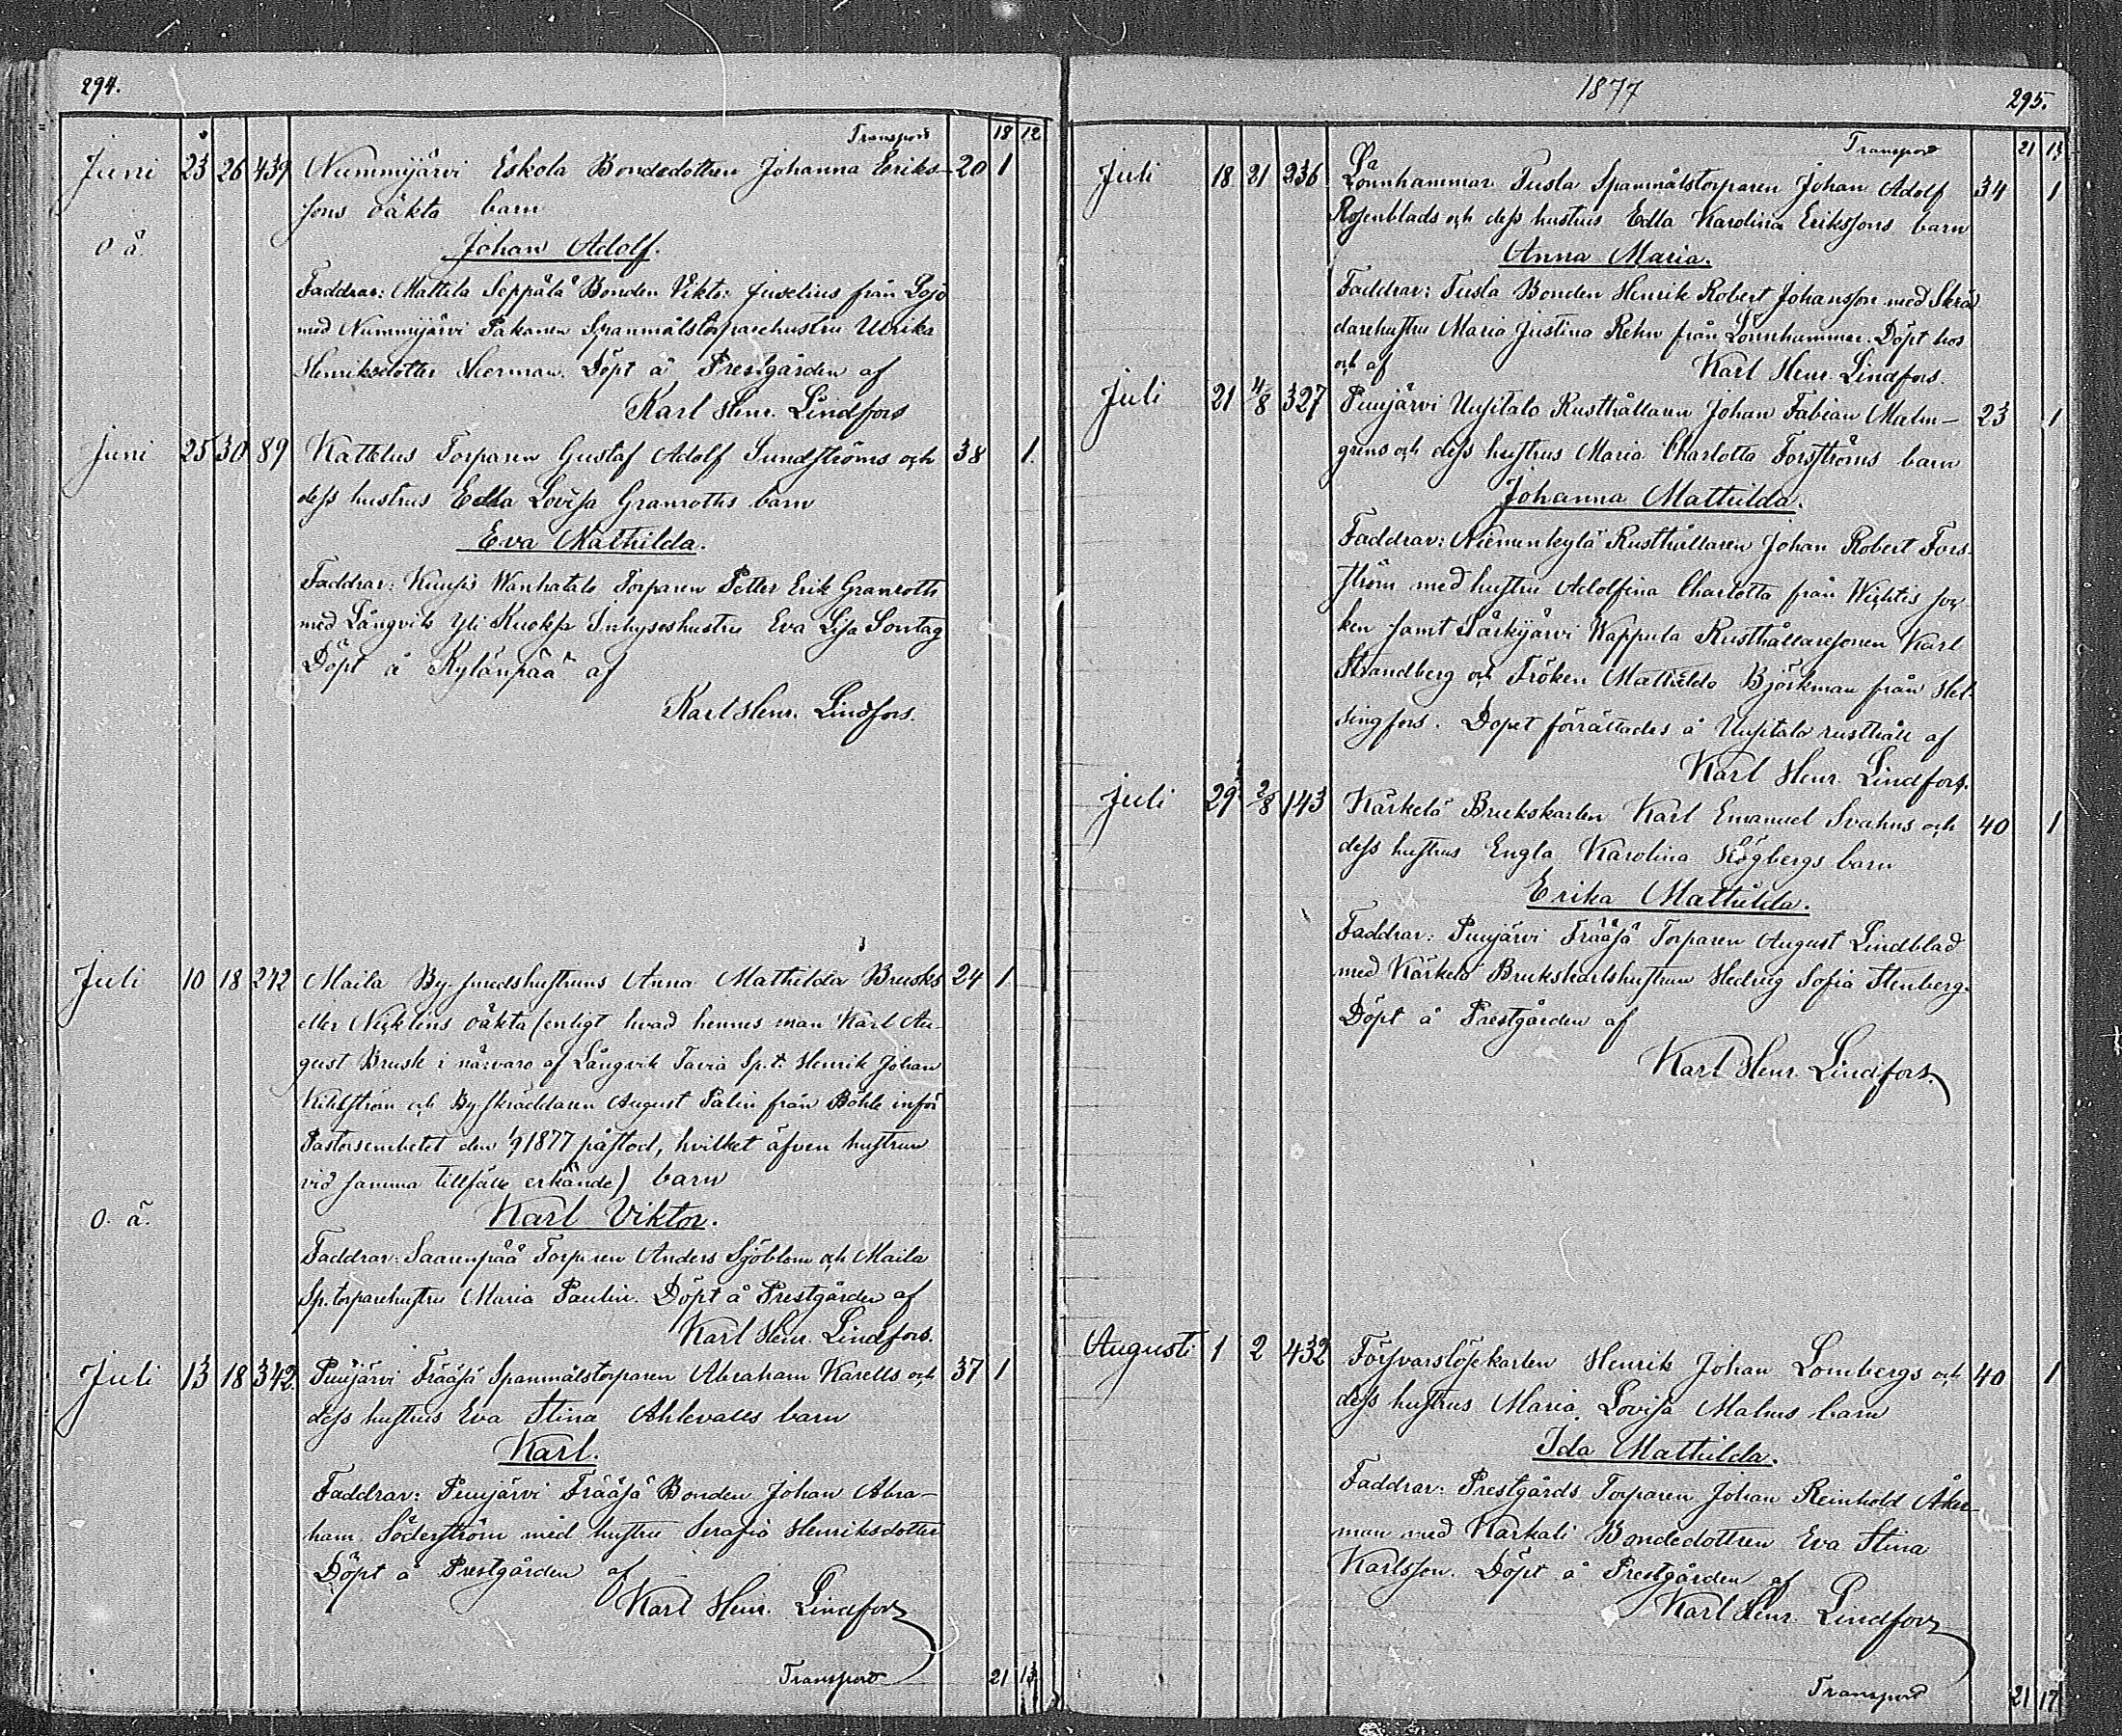 294.
Transport 18 12
Juni 23 26 439 Nummijärvi Eskola Bondedottren Johanna Eriks- 20 1
sons oäkta barn
o ä. Johan Adolf.
Faddrar: Mattila Seppälä Bonden Viktor Juselius från Lojo
med Nummijärvi Pakanen Spanmålstorparehustru Ulrika
Henriksdotter Herman. Döpt å Prestgården af
Karl Henr. Lindfors
Juni 25 30 89 Kattelus Torparen Gustaf Adolf Sundströms och 38 1.
dess hustrus Edla Lovisa Granroths barn
Eva Mathilda.
Faddrar: Wanhatalo Torparen Petter Erik Granroth
med Långvik Yli Kuoksa Inhyseshustru Eva Lisa Sontag
Döpt å Kylänpää af
Karl Henr. Lindfors.
Juli 10 18 242 Maila By smedshustruns Anna Mathilda Brusks 24 1.
eller Nicklins oäkta (enligt hvad hennes man Karl Au-
gust Brusk i närvaro af Långvik Tavia Sp.t. Henrik Johan
och By skräddaren August Palin från Böhle inför
Pastorsembetet den 1/9 1877 påstod, hvilket äfven hustrun
vid samma tillfälle erkände) barn
o. ä. Karl Viktor.
Faddrar: Saarenpää Torparen Anders Sjöblom och Maila
Sp. torparehustru Maria Paulin. Döpt å Prestgården af
Karl Henr. Lindfors.
Juli 13 18 342. Puujärvi Frääsä Spanmålstorparen Abraham Karells och 37 1
dess hustrus Eva Stina Ahlevalls barn
Karl.
Faddrar: Puujärvi Frääsä Bonden Johan Abra-
ham Söderström med hustru Serafia Henriksdotter
Döpt å Prestgården af
Karl Henr. Lindfors
Transport 21 13
1877
295.
Transport 21 13
Juli 18 21 236 Lönnhammar Tusla Spanmålstorparen Johan Adolf 34 1
Rosenblads och dess hustrus Edla Karolina Erikssons barn
Anna Maria.
Faddrar: Tusla Bonden Henrik Robert Johansson med Skräd
darehustru Maria Justina Rehn från Lönnhammar. Döpt hos
och af Karl Henr. Lindfors.
Juli 21 4/8 327 Puujärvi Uusitalo Rusthållaren Johan Fabian Malm- 23 1
grens och dess hustrus Maria Charlotta Forsströms barn
Johanna Mathilda.
Faddrar: Niemenkylä Rusthållaren Johan Robert Fors-
ström med hustru Adolfina Charlotta från Wichtis soc-
ken samt Särkijärvi Kappula Rusthållaresonen Karl
Strandberg och Fröken Mathilda Björkman från Hel-
singfors. Dopet förrättades å Uusitalo rusthåll af
Karl Henr. Lindfors.
Juli 29 2/8 143 Kärkelä Brukskarlen Karl Emanuel Svahns och 40 1
dess hustrus Engla Karolina Högbergs barn
Erika Mathilda.
Faddrar: Puujärvi Frääsä Torparen August Lindblad
med Kärkelä Brukskarlshustrun Hedvig Sofia Stenberg.
Döpt å Prestgården af
Karl Henr. Lindfors.
Augusti 1 2 432 Försvarslösekarlen Henrik Johan Lombergs och 40 1
dess hustrus Maria Lovisa Malms barn
Ida Mathilda.
Faddrar: Prestgårds Torparen Johan Reinhold Åker-
man med Karkali Bondedottren Eva Stina
Karlsson. Döpt å Prestgården af
Karl Henr. Lindfors
Transport 21 17